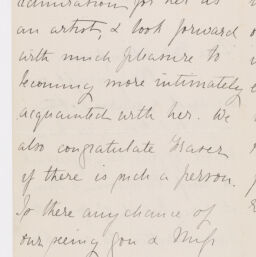 admiration for her as
an artist, & look forward
with much pleasure to
becoming more intimately
acquainted with her. We
also congratulate Fraser
if there is such a person.
Is there any chance of
our seeing you & Miss